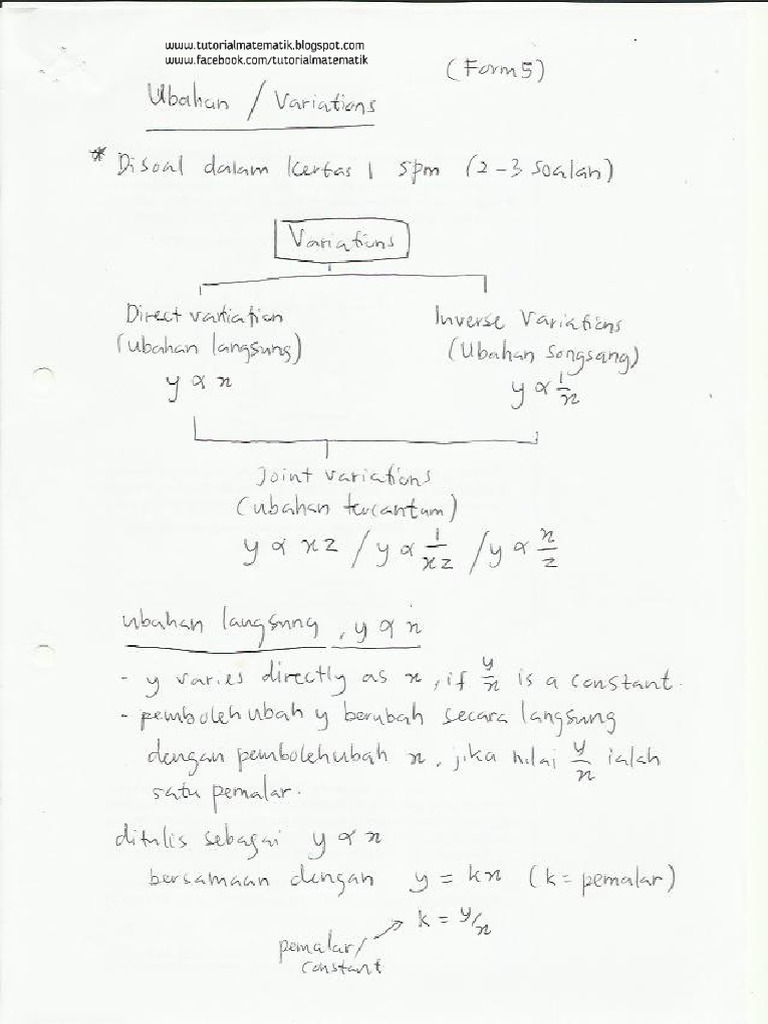 www.tutorialmatematik.blogspot.com
www.facebook.com/tutorialmatematik
(Form 5)
Ubahan / Variations
* Disoal dalam kertas 1 spm (2-3 soalan)
Variations
Direct variation
(ubahan langsung)
y ∝ x
Inverse Variations
(Ubahan songsang)
y ∝ 1/x
Joint variations
(ubahan tercantum)
y ∝ xz / y ∝ 1/xz / y ∝ x/z
ubahan langsung, y ∝ x
- y varies directly as x, if y/x is a constant.
- pembolehubah y berubah secara langsung
dengan pembolehubah x, jika nilai y/x ialah
satu pemalar.
ditulis sebagai y ∝ x
bersamaan dengan y = kx (k = pemalar)
k = y/x
pemalar/
constant